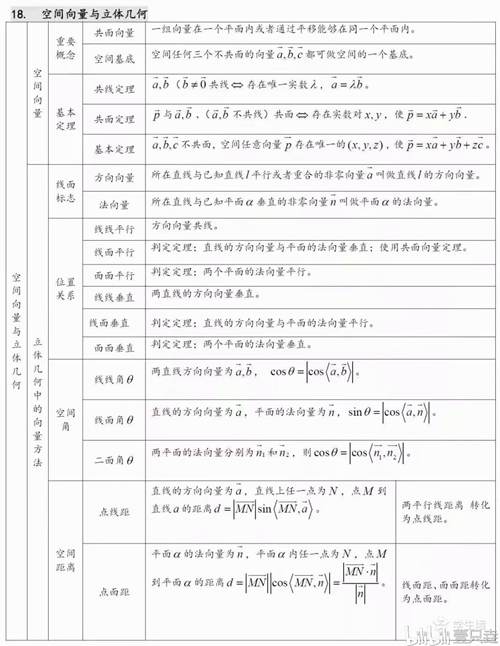 18. 空间向量与立体几何
空间向量与立体几何
空间向量
重要概念
共面向量
一组向量在一个平面内或者通过平移能够在同一个平面内。
空间基底
空间任何三个不共面的向量 a⃗,b⃗,c⃗ 都可做空间的一个基底。
基本定理
共线定理
a⃗,b⃗（b⃗≠0⃗ 共线⇔存在唯一实数λ，a⃗=λb⃗。
共面定理
p⃗ 与 a⃗,b⃗，（a⃗,b⃗ 不共线）共面⇔存在实数对 x,y，使 p⃗=xa⃗+yb⃗.
基本定理
a⃗,b⃗,c⃗ 不共面，空间任意向量 p⃗ 存在唯一的(x,y,z)，使 p⃗=xa⃗+yb⃗+zc⃗。
立体几何中的向量方法
线面标志
方向向量
所在直线与已知直线l平行或者重合的非零向量 a⃗ 叫做直线l的方向向量。
法向量
所在直线与已知平面α垂直的非零向量 n⃗ 叫做平面α的法向量。
位置关系
线线平行
方向向量共线。
线面平行
判定定理；直线的方向向量与平面的法向量垂直；使用共面向量定理。
面面平行
判定定理；两个平面的法向量平行。
线线垂直
两直线的方向向量垂直。
线面垂直
判定定理；直线的方向向量与平面的法向量平行。
面面垂直
判定定理；两个平面的法向量垂直。
空间角
线线角θ
两直线方向向量为 a⃗,b⃗， cosθ=|cos⟨a⃗,b⃗⟩|。
线面角θ
直线的方向向量为 a⃗，平面的法向量为 n⃗，sinθ=|cos⟨a⃗,n⃗⟩|。
二面角θ
两平面的法向量分别为 n⃗₁ 和 n⃗₂，则 cosθ=|cos⟨n⃗₁,n⃗₂⟩|。
空间距离
点线距
直线的方向向量为 a⃗，直线上任一点为 N，点 M 到
直线 a 的距离 d=|MN⃗|sin⟨MN⃗,a⃗⟩。
两平行线距离 转化
为点线距。
点面距
平面α的法向量为 n⃗，平面α内任一点为 N，点 M
到平面α的距离 d=|MN⃗||cos⟨MN⃗,n⃗⟩|=|MN⃗·n⃗|/|n⃗|。
线面距、面面距转化
为点面距。